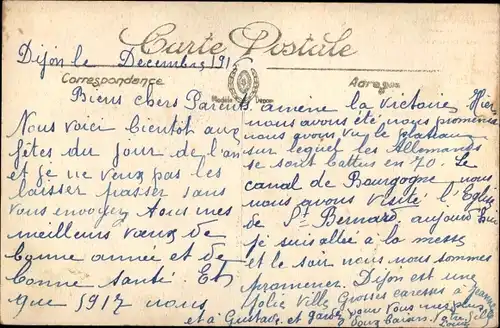 Carte Postale
Dijon le Decembre 1916
Correspondance
Adresse
Modèle Déposé
Biens chers Parents
Nous voici bientôt aux
fêtes du jour de l'an
et je ne veux pas les
laisser passer sans
vous envoyez tous mes
meilleurs vœux de
bonne année et de
bonne santé. Et
que 1917 nous
amène la victoire. Hier
nous avons été nous promener
nous avons vu le plateau
sur lequel les Allemands
se sont battus en 70. Le
canal de Bourgogne nous
nous avons visité l'Eglise
de St Bernard, aujourd'hui
je suis allée à la messe
et le soir nous nous sommes
promener. Dijon est une
jolie ville. Grosses caresses à Jeanne
et à Gustave et gardez pour vous mes plus
doux baisers. Votre fille